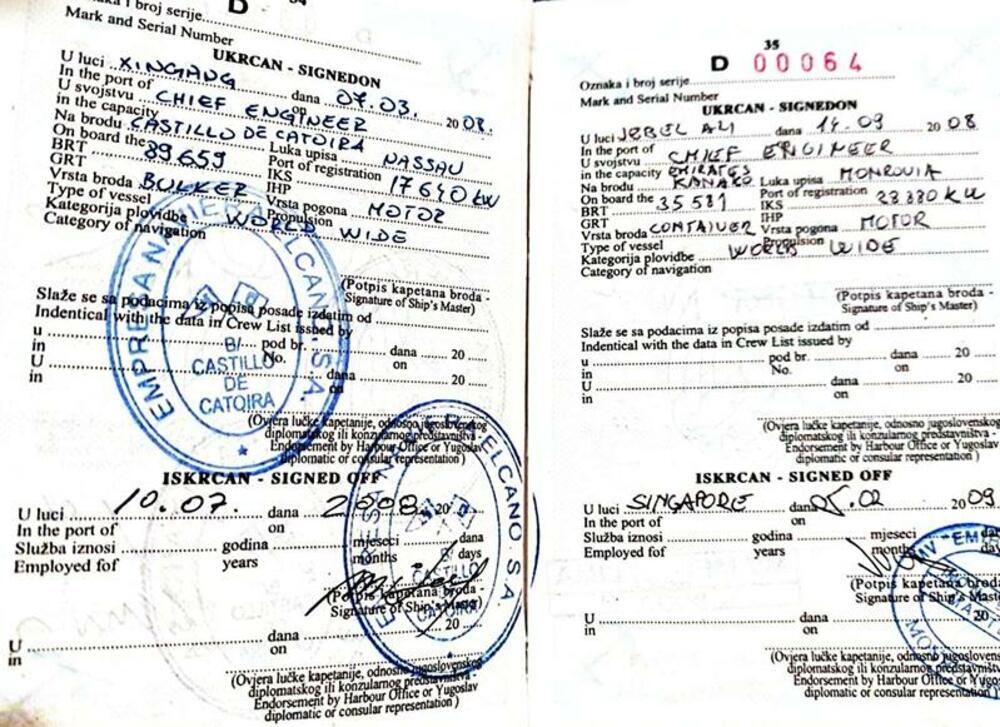 34
Oznaka i broj serije
D
Mark and Serial Number
UKRCAN - SIGNEDON
U luci XINGANG dana 07.03. 2008.
In the port of on
U svojstvu CHIEF ENGINEER
in the capacity
Na brodu CASTILLO DE CATOIRA Luka upisa NASSAU
On board the Port of registration
BRT 89659 IKS 17640 KW
GRT IHP
Vrsta broda BULKER Vrsta pogona MOTOR
Type of vessel Propulsion
Kategorija plovidbe WORLD WIDE
Category of navigation
(Potpis kapetana broda -
Signature of Ship's Master)
Slaže se sa podacima iz popisa posade izdatim od
Indentical with the data in Crew List issued by
u pod br. dana 20
in No. on
U dana 20
in on
B/
CASTILLO
DE
CATOIRA
ELCANO, S.A.
(Ovjera lučke kapetanije, odnosno jugoslovenskog
diplomatskog ili konzularnog predstavništva -
Endorsement by Harbour Office or Yugoslav
diplomatic or consular representation)
ISKRCAN - SIGNED OFF
U luci 10.07. dana 2008. 20
In the port of on
Služba iznosi godina mjeseci dana
Employed fof years months days
ELCANO S.A.
CASTILLO
CATOIRA
(Potpis kapetana broda -
Signature of Ship's Master)
U dana 20
in on
(Ovjera lučke kapetanije, odnosno jugoslovenskog
diplomatskog ili konzularnog predstavništva -
Endorsement by Harbour Office or Yugoslav
diplomatic or consular representation)
35
D 00064
Oznaka i broj serije
Mark and Serial Number
UKRCAN - SIGNEDON
U luci JEBEL ALI dana 14.09 2008
In the port of on
U svojstvu CHIEF ENGINEER
in the capacity
Na brodu EMIRATES KANAKO Luka upisa MONROVIA
On board the Port of registration
BRT 35581 IKS 28880 KW
GRT IHP
Vrsta broda CONTAINER Vrsta pogona MOTOR
Type of vessel Propulsion
Kategorija plovidbe WORLD WIDE
Category of navigation
(Potpis kapetana broda -
Signature of Ship's Master)
Slaže se sa podacima iz popisa posade izdatim od
Indentical with the data in Crew List issued by
u pod br. dana 20
in No. on
U dana 20
in on
(Ovjera lučke kapetanije, odnosno jugoslovenskog
diplomatskog ili konzularnog predstavništva -
Endorsement by Harbour Office or Yugoslav
diplomatic or consular representation)
ISKRCAN - SIGNED OFF
U luci SINGAPORE dana 05.02 2009
In the port of on
Služba iznosi godina mjeseci dana
Employed fof years months
(Potpis kapetana broda
Signature of Ship's Master
U dana 20
in on
(Ovjera lučke kapetanije, odnosno jugoslovenskog
diplomatskog ili konzularnog predstavništva
Endorsement by Harbour Office or Yugoslav
diplomatic or consular representation)